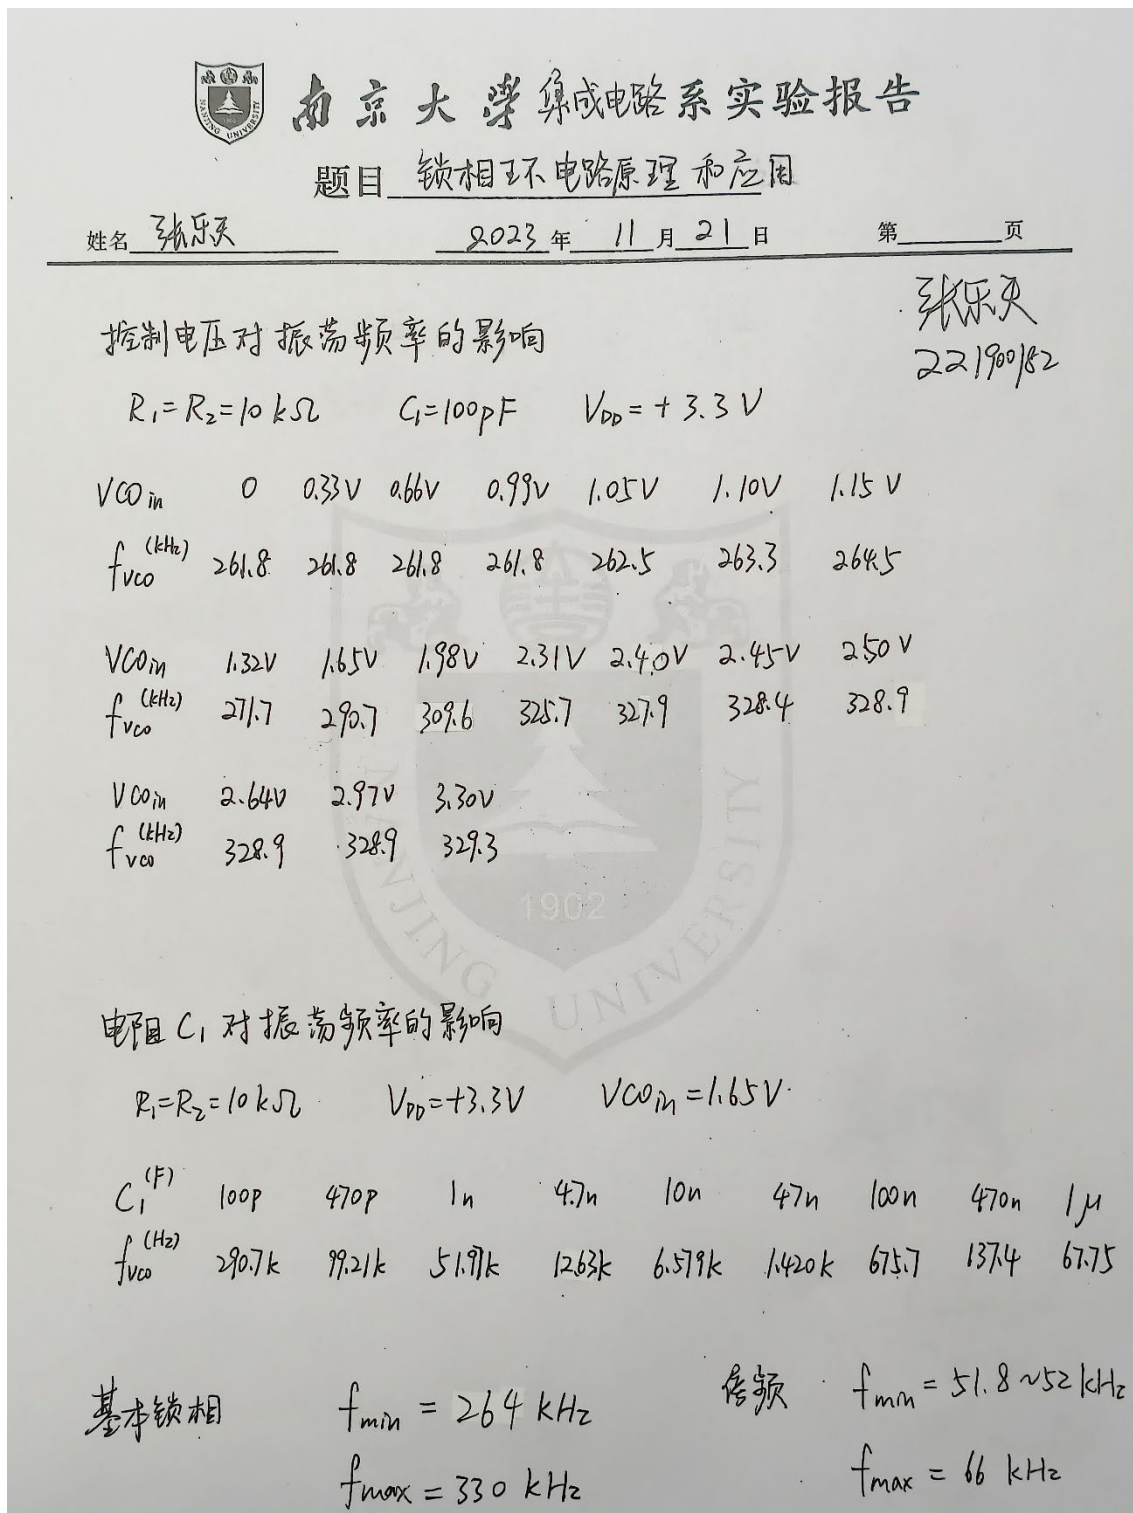 南京大学集成电路系实验报告
题目 锁相环电路原理和应用
姓名 张乐天 2023 年 11 月 21 日 第 页
张乐天
221900182
控制电压对振荡频率的影响
R₁=R₂=10kΩ C₁=100pF V_DD=+3.3V
VCOin 0 0.33V 0.66V 0.99V 1.05V 1.10V 1.15V
fvco (kHz) 261.8 261.8 261.8 261.8 262.5 263.3 264.5
VCOin 1.32V 1.65V 1.98V 2.31V 2.40V 2.45V 2.50V
fvco (kHz) 271.7 290.7 309.6 325.7 327.9 328.4 328.9
VCOin 2.64V 2.97V 3.30V
fvco (kHz) 328.9 328.9 329.3
电阻C₁对振荡频率的影响
R₁=R₂=10kΩ V_DD=+3.3V VCOin=1.65V
C₁ (F) 100p 470p 1n 4.7n 10n 47n 100n 470n 1μ
fvco (Hz) 290.7k 99.21k 51.97k 12.63k 6.579k 1.420k 675.7 137.4 67.75
基本锁相 fmin = 264 kHz 倍频 fmin = 51.8~52kHz
fmax = 330 kHz fmax = 66 kHz
NANJING UNIVERSITY
1902